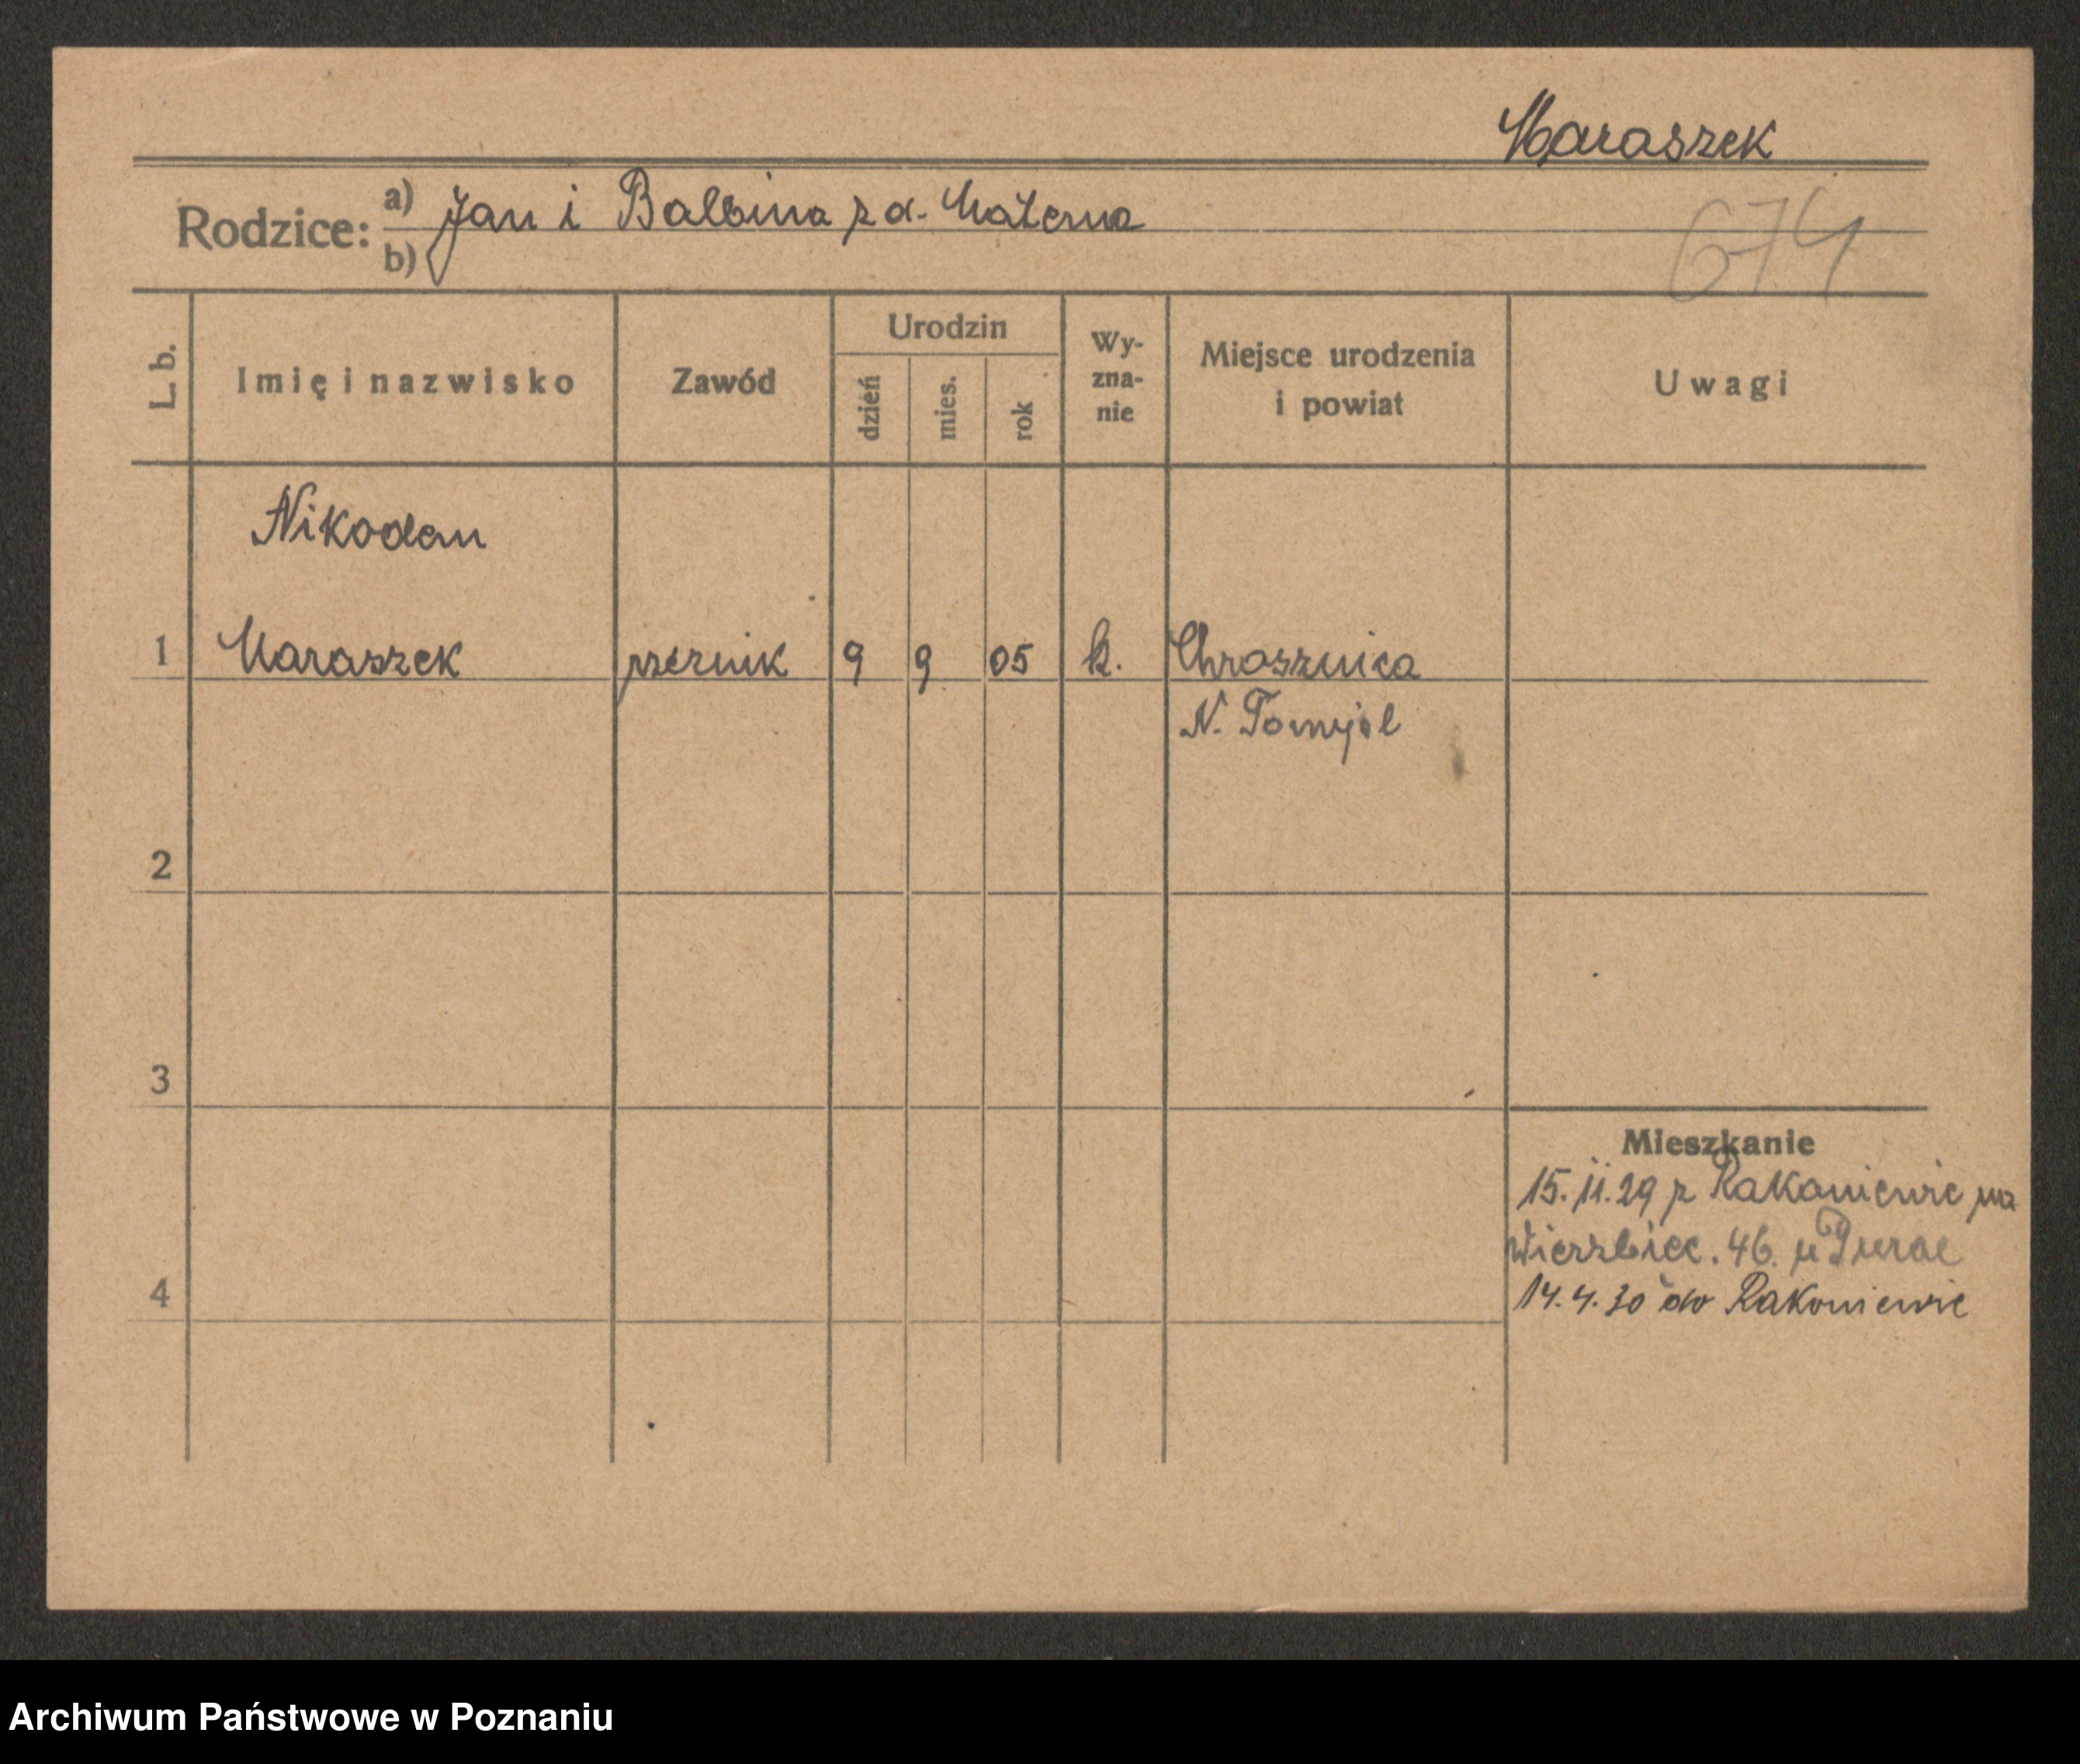 Maraszek
Rodzice: a) Jan i Balbina z d. Materna
b)
674
L. b.
Imię i nazwisko
Zawód
Urodzin
dzień
mies.
rok
Wy-
zna-
nie
Miejsce urodzenia
i powiat
Uwagi
Nikodem
1 Maraszek 9 9 05 k. Chrosznica
N. Tomyśl
2
3
Mieszkanie
15. 11. 29 z Rakoniewic
Wierzbięc. 46. u
4
14. 4. 30 do Rakoniewic
Archiwum Państwowe w Poznaniu